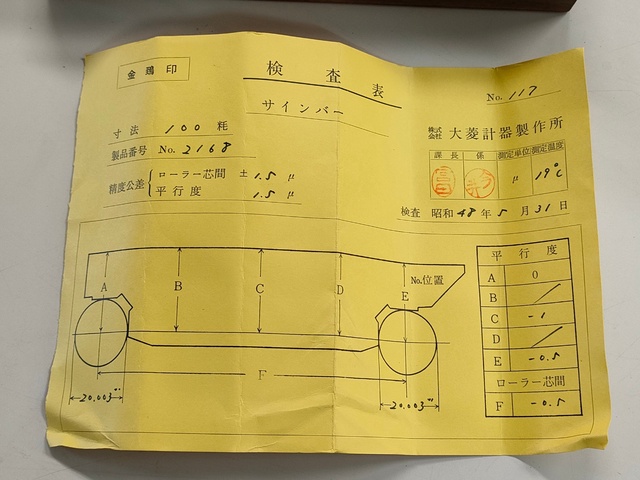 金鵄印
検査表
No. 117
サインバー
寸法 100 粍
製品番号 No. 2168
精度公差 ローラー芯間 ± 1.5 μ
平行度 1.5 μ
株式会社 大菱計器製作所
課長 係 測定単位 測定温度
μ 19℃
検査 昭和48年5月31日
A B C D E
No.位置
F
20.003
20.003
平行度
A 0
B
C -1
D
E -0.5
ローラー芯間
F -0.5